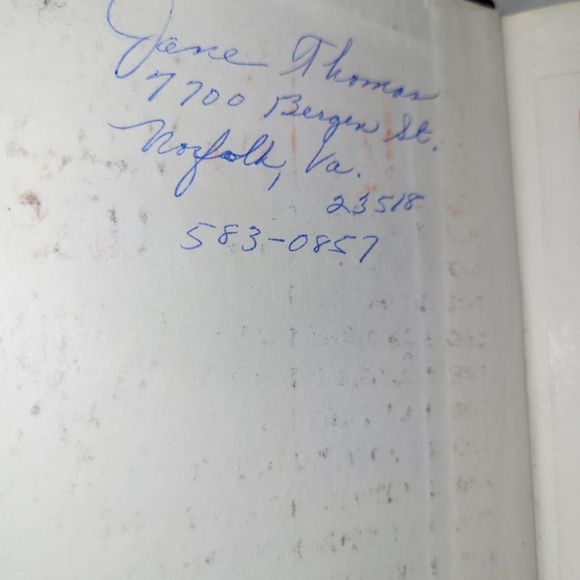 Jane Thomas
7700 Bergen St.
Norfolk, Va.
23518
583-0857